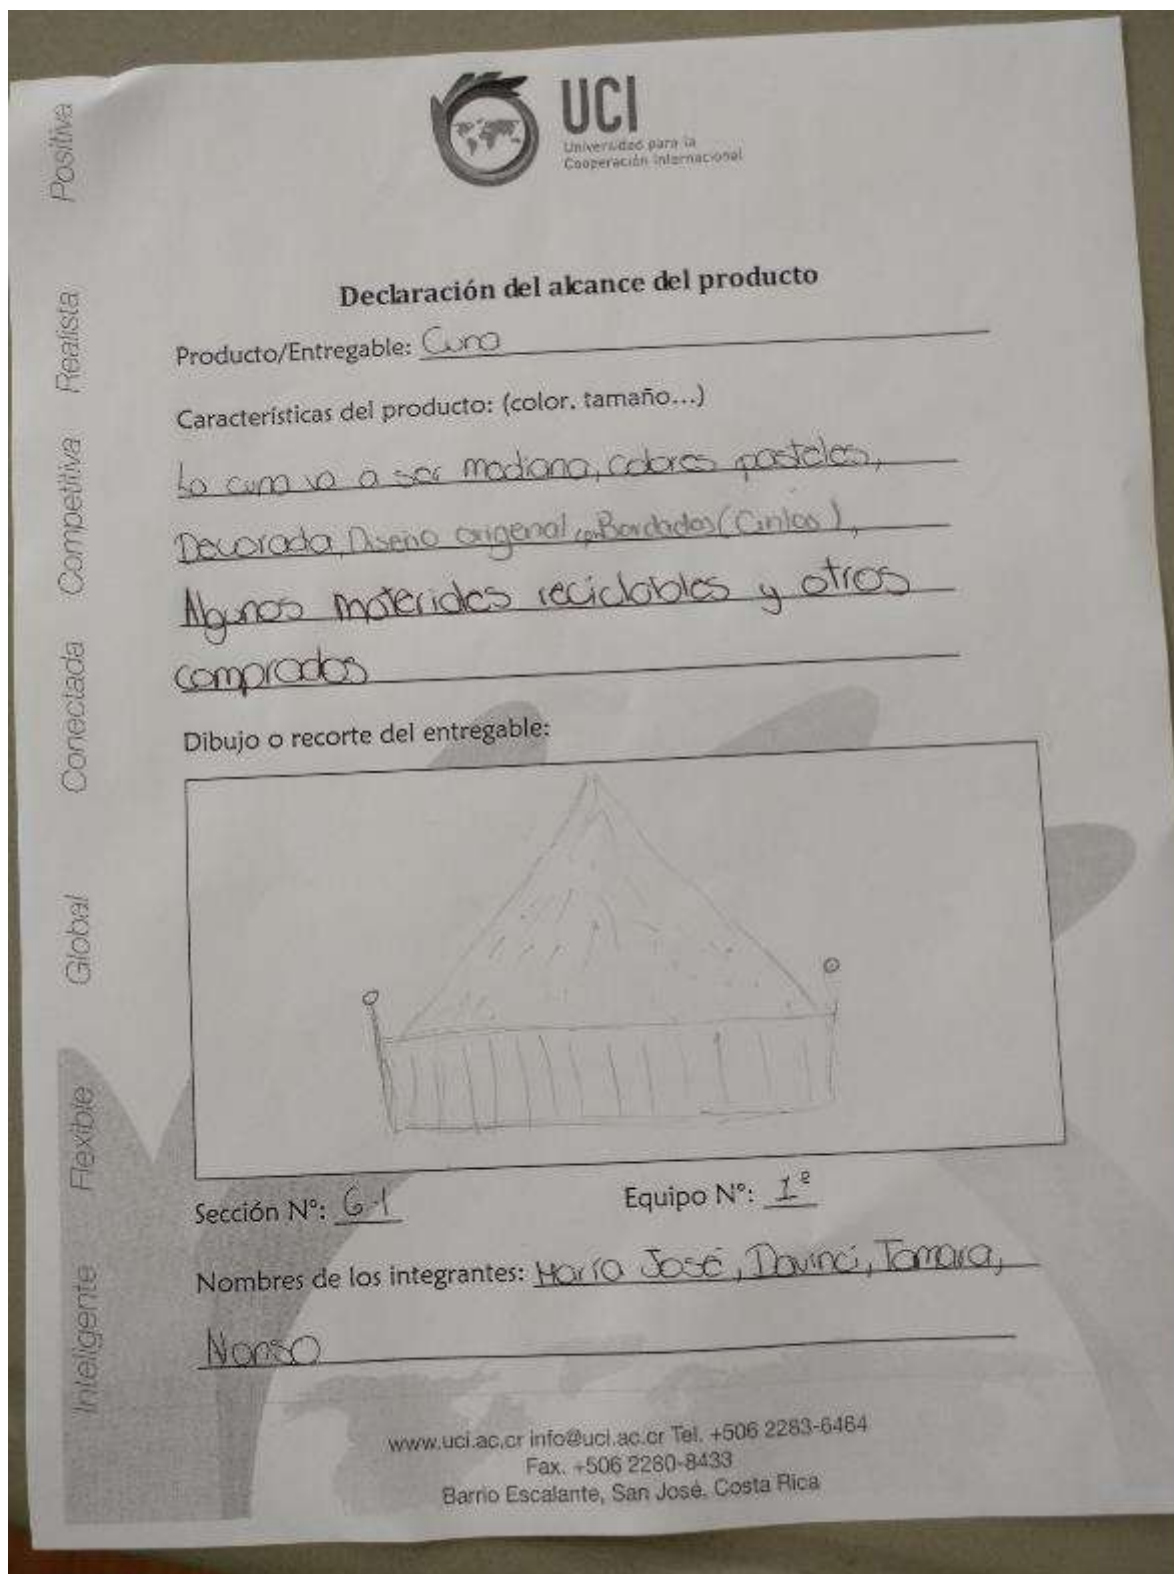 UCI
Universidad para la
Cooperación Internacional
Positiva
Realista
Competitiva
Conectada
Global
Flexible
Inteligente
Declaración del alcance del producto
Producto/Entregable: Cuna
Características del producto: (color, tamaño...)
La cuna va a ser mediana, colores pasteles,
Decorada, Diseño origenal con Bordados (Cintas),
Algunos materiales reciclables y otros
comprados
Dibujo o recorte del entregable:
Sección N°: 6-1 Equipo N°: 1º
Nombres de los integrantes: María José, Davinci, Tamara,
www.uci.ac.cr info@uci.ac.cr Tel. +506 2283-6464
Fax. +506 2280-8433
Barrio Escalante, San José, Costa Rica